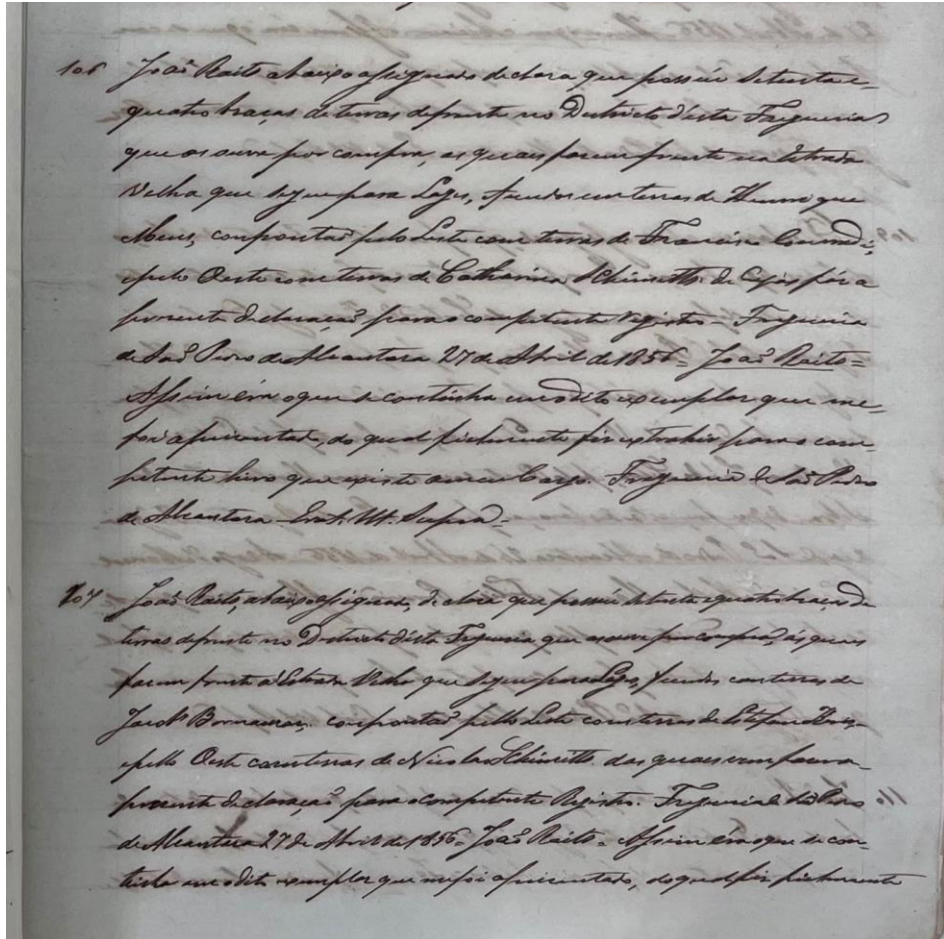 106 João Raito abaixo assignado declara que possúe setenta e
quatro braças de terras de frente no Destricto d'esta Freguesia
que as ouve por compra, as quais fasem frente na Estrada
Velha que segue para Lages, fundos com terras de Henrique
confrontão pelo Leste com terras de Francisco
e pelo Oeste com terras de Catharina Schimitth. de
presente declaração para o competente registro - Freguesia
de São Pedro de Alcantara 27 de Abril de 1856 = João Raito =
Assim éra o que se continha em o dito exemplar que me
foi apresentado, do qual fielmente fis extrahir para o com-
petente livro que existe a meu Cargo. Freguesia de São Pedro
de Alcantara Era Ut Supra =
107 João Raito, abaixo assignado, declara que possúe setenta e quatro braças de
terras de frente no Destricto d'esta Freguesia que as ouve por compra, as quais
fasem frente a Estrada Velha que segue para Lages, fundos com terras de
Jacob confrontão pello Leste com terras de Estefano
e pello Oeste com terras de Nicolao Schimitth. das quaes vem faser a
presente declaração para o competente Registro. Freguesia de São Pedro
de Alcantara 27 de Abril de 1856 = João Raito = Assim éra o que se con-
tinha em o dito exemplar que me foi apresentado, do qual fis fielmente